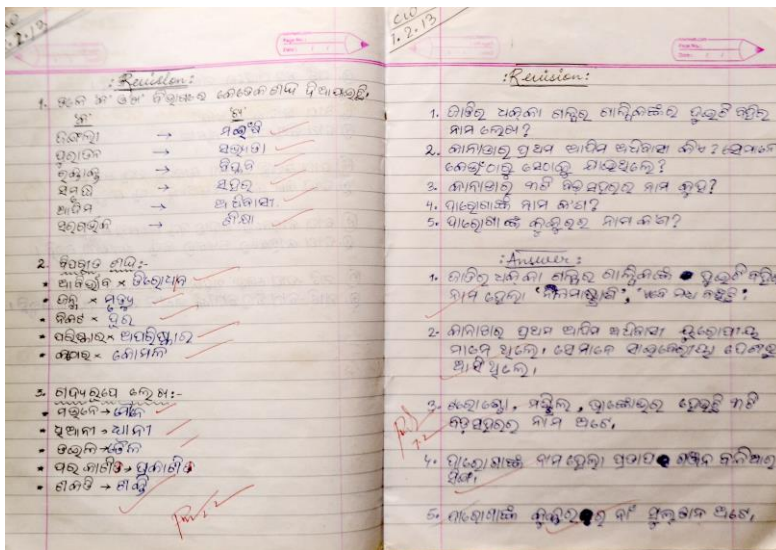 C/W
1.2.13
:Revision:
1. 'କ' ଓ 'ଖ' ବିଭାଗରେ କେତେକ ଶବ୍ଦ ଦିଆଯାଇଛି।
'କ' 'ଖ'
ଜଙ୍ଗଲୀ → ମଇଁଷି
ପୁରାତନ → ସଭ୍ୟତା
ରକ୍ତାକ୍ତ → ବିପ୍ଳବ
ସମୃଦ୍ଧ → ସହର
ଆଦିମ → ଅଧିବାସୀ
→ ଶିକ୍ଷା
2. ବିପରୀତ ଶବ୍ଦ:-
• ଆବିର୍ଭାବ × ତିରୋଧାନ
• ଜନ୍ମ × ମୃତ୍ୟୁ
• ନିକଟ × ଦୂର
• ପରିଷ୍କାର × ଅପରିଷ୍କାର
• କଠୋର × କୋମଳ
3. ଗଦ୍ୟରୂପେ ଲେଖ:-
• ମଉନେ → ମୌନ
• ଧିଆନୀ → ଧ୍ୟାନୀ
• ତଇଳ → ତୈଳ
• ପରକାଶିତ → ପ୍ରକାଶିତ
• ଶକତି → ଶକ୍ତି
C/W
1.2.13
:Revision:
1. ଜାତିର ଧକ୍କା ଗଳ୍ପର ଗାଳ୍ପିକଙ୍କର ଦୁଇଟି ବହିର
ନାମ ଲେଖ?
2. କାନାଡାର ପ୍ରଥମ ଆଦିମ ଅଧିବାସୀ କିଏ? ସେମାନେ
କେଉଁଠାରୁ ସେଠାକୁ ଯାଇଥିଲେ?
3. କାନାଡାର ୩ଟି ବଡ଼ ସହରର ନାମ କୁହ?
4. ଦାରୋଗାଙ୍କ ନାମ କ'ଣ?
5. ଦାରୋଗାଙ୍କ କୁକୁରର ନାମ କ'ଣ?
:Answer:
1. ଜାତିର ଧକ୍କା ଗଳ୍ପର ଗାଳ୍ପିକଙ୍କ ଦୁଇଟି ବହିର
ନାମ ହେଲା 'ନୀଳମାଷ୍ଟ୍ରାଣୀ',
2. କାନାଡାର ପ୍ରଥମ ଆଦିମ ଅଧିବାସୀ ୟୁରୋପୀୟ
ମାନେ ଥିଲେ। ସେମାନେ ସାଇବେରୀୟା ଦେଶରୁ
ଆସିଥିଲେ।
3. ଟରୋଣ୍ଟୋ, ମଣ୍ଟ୍ରିଲ, ଭାଙ୍କୋଭର ହେଉଛି ୩ଟି
ବଡ଼ସହରର ନାମ ଅଟେ।
4. ଦାରୋଗାଙ୍କ ନାମ ହେଲା ପ୍ରତାପ ଗଞ୍ଜନ ବଳିଆର
ସିଂହ।
5. ଦାରୋଗାଙ୍କ କୁକୁରର ନାଁ ସୁଲତାନ ଅଟେ।